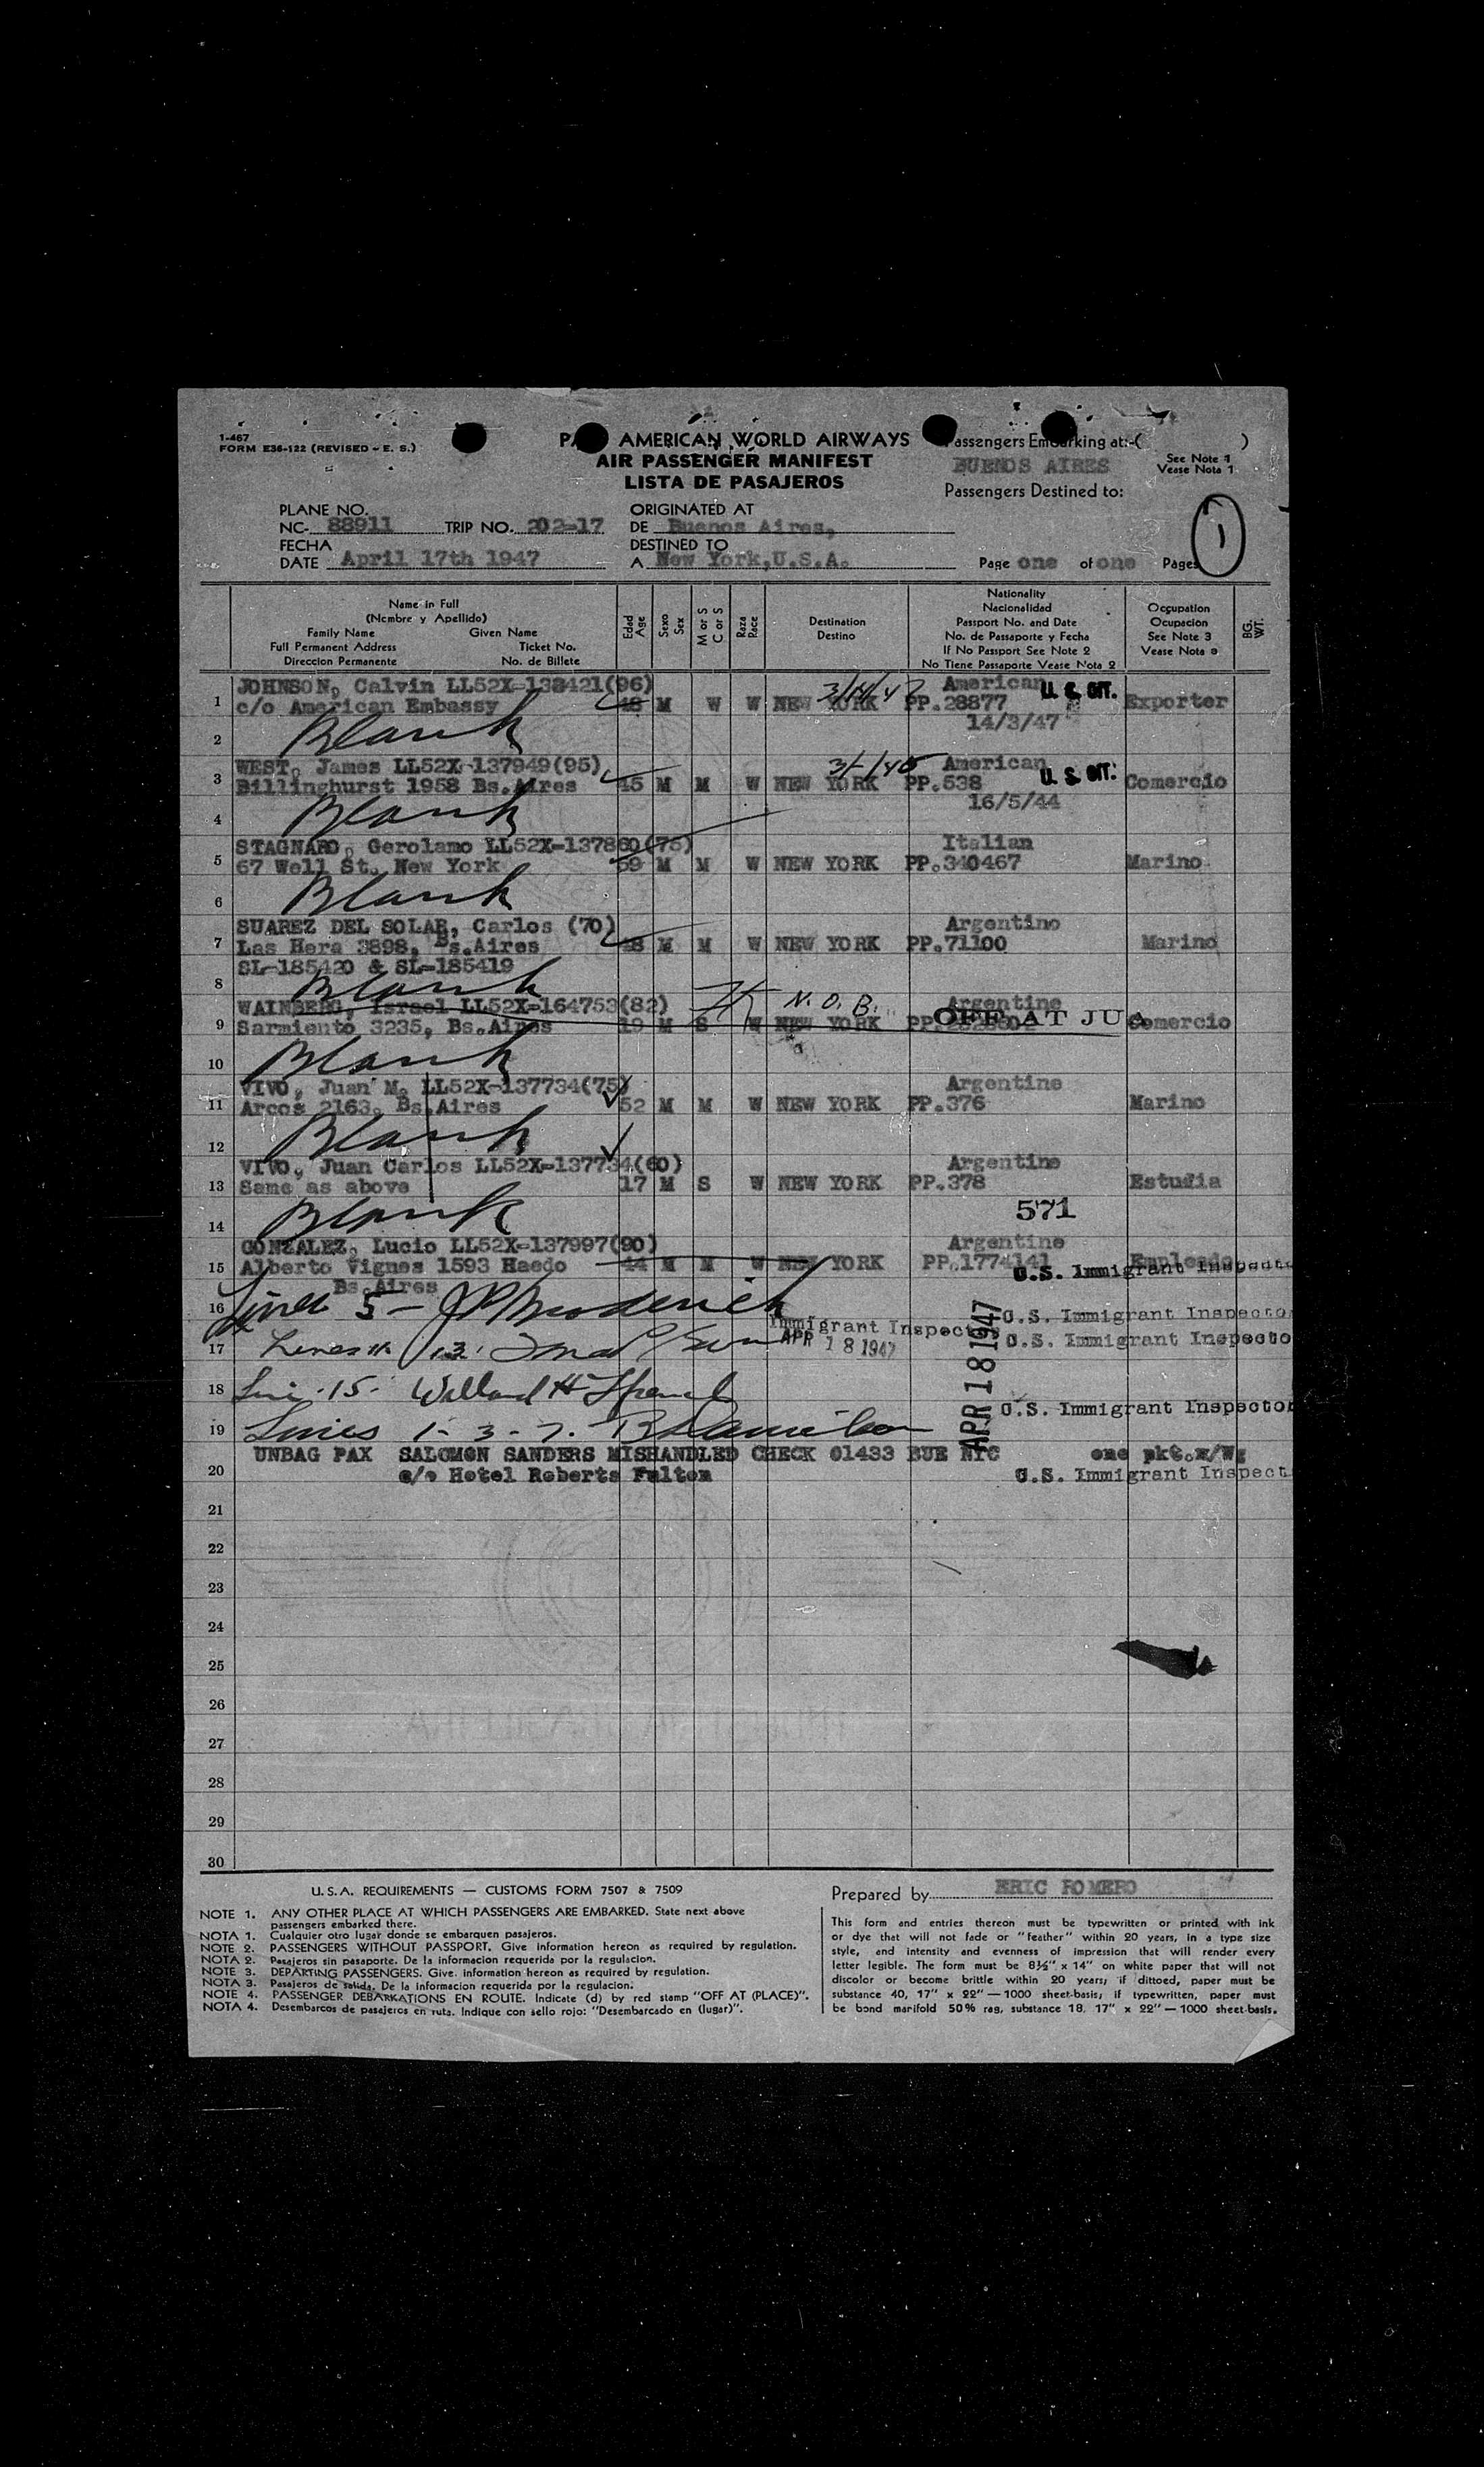 1-467
FORM E36-122 (REVISED - E. S.)
AMERICAN WORLD AIRWAYS
AIR PASSENGER MANIFEST
LISTA DE PASAJEROS
Passengers Embarking at:-( )
BUENOS AIRES
See Note 1
Vease Nota 1
Passengers Destined to:
1
PLANE NO.
NC- 88911 TRIP NO. 202-17
ORIGINATED AT
DE Buenos Aires,
FECHA
DATE April 17th 1947
DESTINED TO
A New York,U.S.A.
Page one of one Pages
Name in Full
(Nombre y Apellido)
Family Name Given Name
Full Permanent Address Ticket No.
Direccion Permanente No. de Billete
Edad
Age
Sexo
Sex
M or S
C or S
Raza
Race
Destination
Destino
Nationality
Nacionalidad
Passport No. and Date
No. de Passaporte y Fecha
If No Passport See Note 2
No Tiene Passaporte Vease Nota 2
Occupation
Ocupacion
See Note 3
Vease Nota
BG.
WT.
JOHNSON, Calvin LL52X-138421(96) 3/14/47 American U. S. CIT.
1 c/o American Embassy M W W NEW YORK PP.28877 Exporter
14/3/47
2 Blank
WEST, James LL52X-137949(95) American U. S. CIT.
3 Billinghurst 1958 Bs.Aires 45 M M W NEW YORK PP.538 Comercio
16/5/44
4 Blank
STAGNARO, Gerolamo LL52X-137860(75) Italian
5 67 Wall St. New York 59 M M W NEW YORK PP.340467 Marino
6 Blank
SUAREZ DEL SOLAR, Carlos (70) Argentino
7 Las Hera 3898, Bs.Aires 48 M M W NEW YORK PP.71100 Marino
SL-185420 & SL-185419
8 Blank
WAINBERG, Israel LL52X-164753(82) N.O.B. Argentine
9 Sarmiento 3235, Bs.Aires 19 M S W NEW YORK OFF AT JUA Comercio
10 Blank
VIVO, Juan M. LL52X-137734(75) Argentine
11 Arcos 2163, Bs.Aires 52 M M W NEW YORK PP.376 Marino
12 Blank
VIVO, Juan Carlos LL52X-137734(60) Argentine
13 Same as above 17 M S W NEW YORK PP.378 Estudia
571
14 Blank
GONZALEZ, Lucio LL52X-137997(90) Argentine
15 Alberto Vignes 1593 Haedo 44 M M W NEW YORK PP.1774141 Empleado
Bs.Aires
U.S. Immigrant Inspector
16 Line 5 - J P Broderick
U.S. Immigrant Inspector
Immigrant Inspector
APR 18 1947
17 Lines 11 13
U.S. Immigrant Inspector
APR 18 1947
18 Line 15 Willard H
U.S. Immigrant Inspector
19 Lines 1-3-7.
UNBAG PAX SALOMON SANDERS MISHANDLED CHECK 01433 BUE NYC one pkt.
20 c/o Hotel Roberts Fulton
U.S. Immigrant Inspect
21
22
23
24
25
26
27
28
29
30
U.S.A. REQUIREMENTS — CUSTOMS FORM 7507 & 7509
NOTE 1. ANY OTHER PLACE AT WHICH PASSENGERS ARE EMBARKED. State next above
passengers embarked there.
NOTA 1. Cualquier otro lugar donde se embarquen pasajeros.
NOTE 2. PASSENGERS WITHOUT PASSPORT. Give information hereon as required by regulation.
NOTA 2. Pasajeros sin pasaporte. De la informacion requerida por la regulacion.
NOTE 3. DEPARTING PASSENGERS. Give. information hereon as required by regulation.
NOTA 3. Pasajeros de salida. De la informacion requerida por la regulacion.
NOTE 4. PASSENGER DEBARKATIONS EN ROUTE. Indicate (d) by red stamp "OFF AT (PLACE)".
NOTA 4. Desembarcos de pasajeros en ruta. Indique con sello rojo: "Desembarcado en (lugar)".
Prepared by ERIC ROMERO
This form and entries thereon must be typewritten or printed with ink
or dye that will not fade or "feather" within 20 years, in a type size
style, and intensity and evenness of impression that will render every
letter legible. The form must be 8½" x 14" on white paper that will not
discolor or become brittle within 20 years; if dittoed, paper must be
substance 40, 17" x 22" — 1000 sheet-basis; if typewritten, paper must
be bond manifold 50% rag, substance 18, 17" x 22" — 1000 sheet-basis.